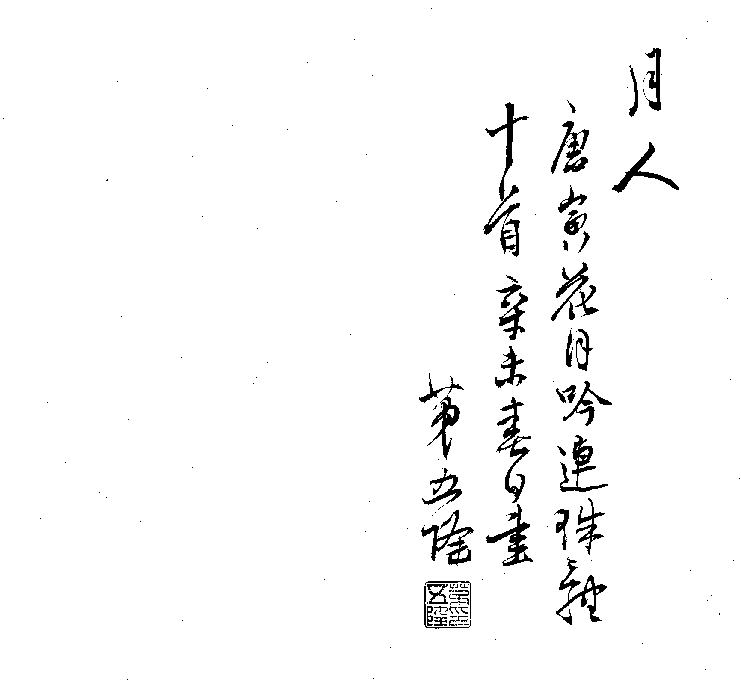 月人
唐寅花月吟連珠體
十首辛未春日書
第五隆